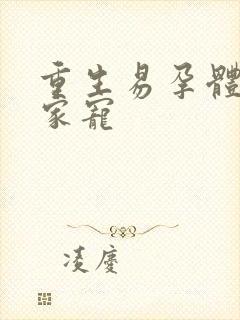 重生易孕體
家寵
凌慶